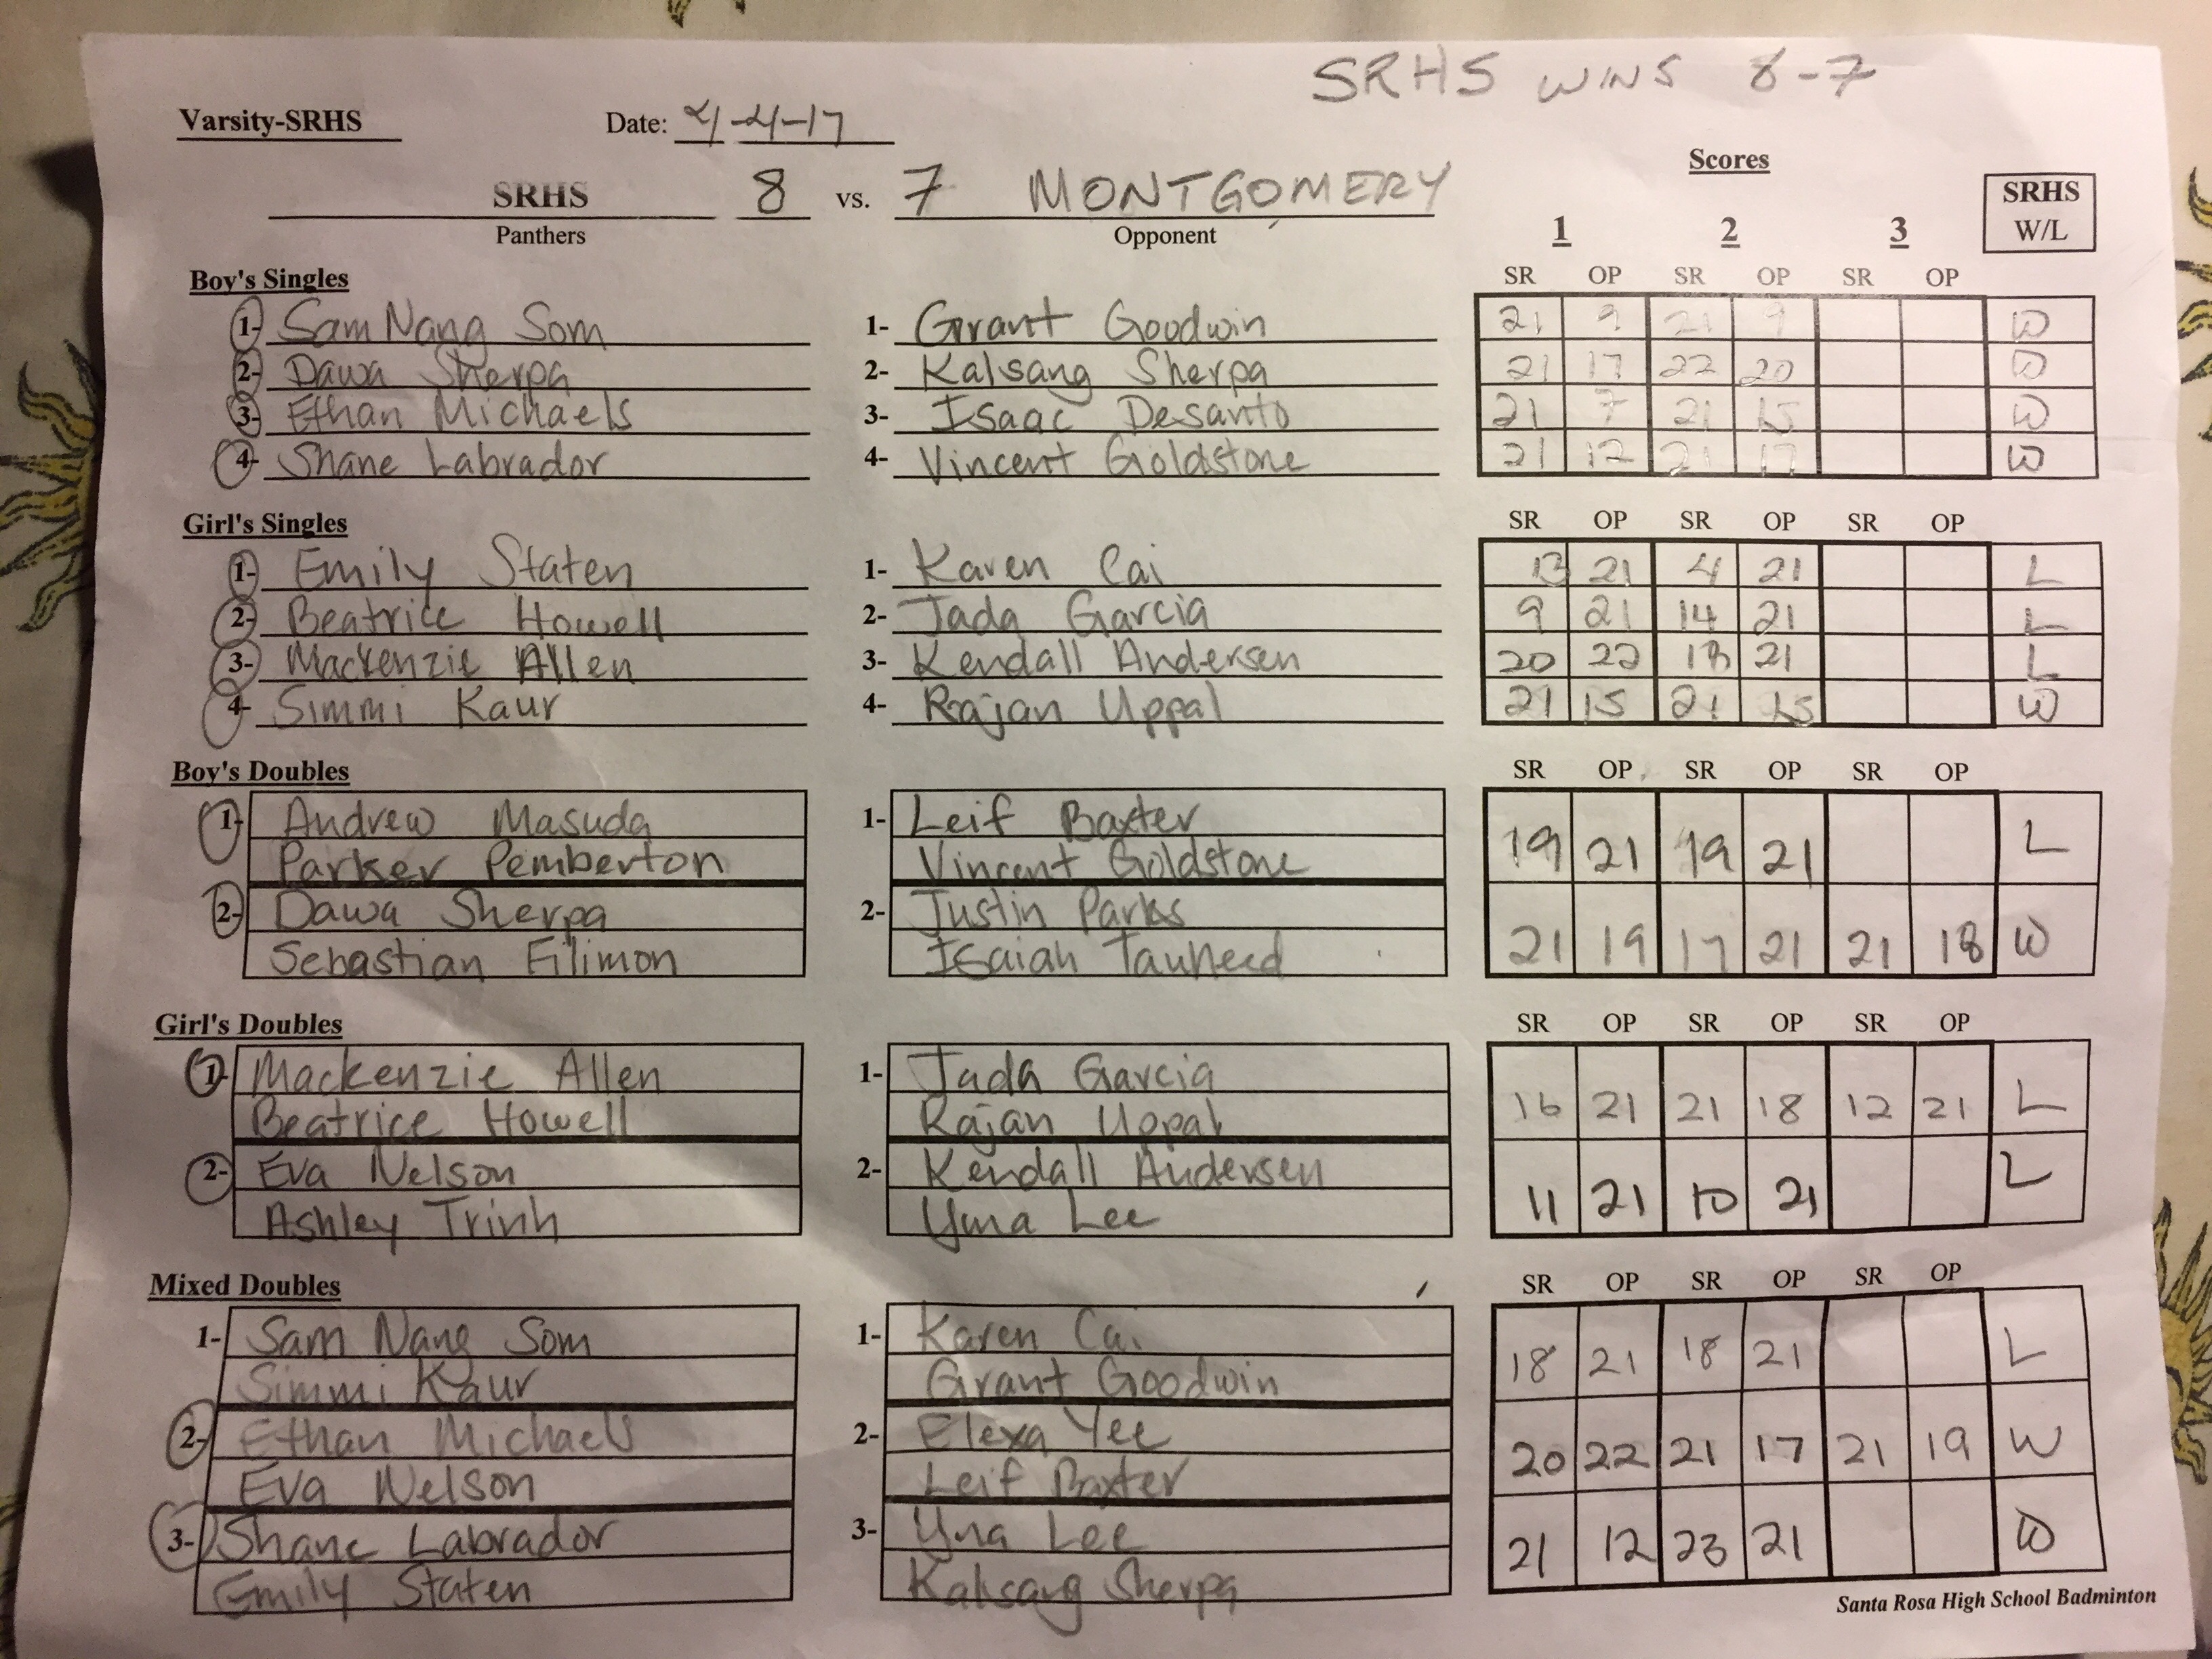 SRHS WINS 8-7
Varsity-SRHS Date: 4-4-17
Scores
SRHS 8 vs. 7 MONTGOMERY
Panthers Opponent
1 2 3
SRHS
W/L
Boy's Singles SR OP SR OP SR OP
1- Sam Nang Som 1- Grant Goodwin 21 9 21 9 W
2- Dawa Sherpa 2- Kalsang Sherpa 21 17 22 20 W
3- Ethan Michaels 3- Isaac Desanto 21 7 21 15 W
4- Shane Labrador 4- Vincent Goldstone 21 12 21 17 W
Girl's Singles SR OP SR OP SR OP
1- Emily Staten 1- Karen Cai 13 21 4 21 L
2- Beatrice Howell 2- Jada Garcia 9 21 14 21 L
3- Mackenzie Allen 3- Kendall Andersen 20 22 18 21 L
4- Simmi Kaur 4- Rajan Uppal 21 15 21 15 W
Boy's Doubles SR OP SR OP SR OP
1- Andrew Masuda 1- Leif Baxter
Parker Pemberton Vincent Goldstone 19 21 19 21 L
2- Dawa Sherpa 2- Justin Parks
Sebastian Filimon Isaiah Tauheed 21 19 17 21 21 18 W
Girl's Doubles SR OP SR OP SR OP
1- Mackenzie Allen 1- Jada Garcia
Beatrice Howell Rajan Uppal 16 21 21 18 12 21 L
2- Eva Nelson 2- Kendall Andersen
Ashley Trinh Yuna Lee 11 21 10 21 L
Mixed Doubles SR OP SR OP SR OP
1- Sam Nang Som 1- Karen Cai
Simmi Kaur Grant Goodwin 18 21 18 21 L
2- Ethan Michaels 2- Elexa Yee
Eva Nelson Leif Baxter 20 22 21 17 21 19 W
3- Shane Labrador 3- Yuna Lee
Emily Staten Kalsang Sherpa 21 12 23 21 W
Santa Rosa High School Badminton